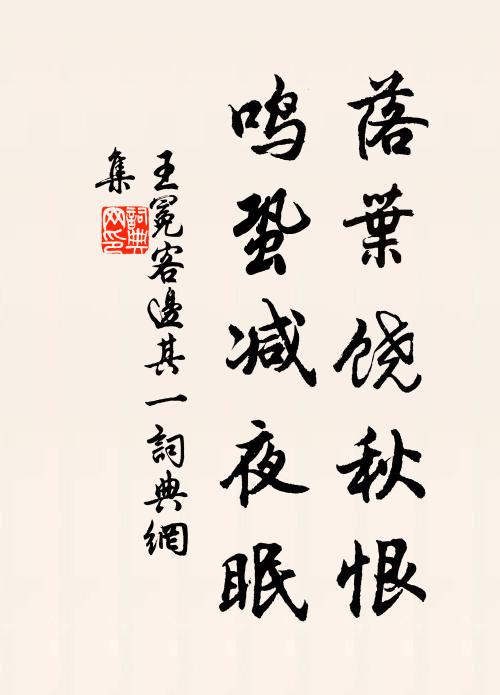 落葉饶秋恨
鸣蛩减夜眠
王冕客邊其一詞典網
集
詞典网印